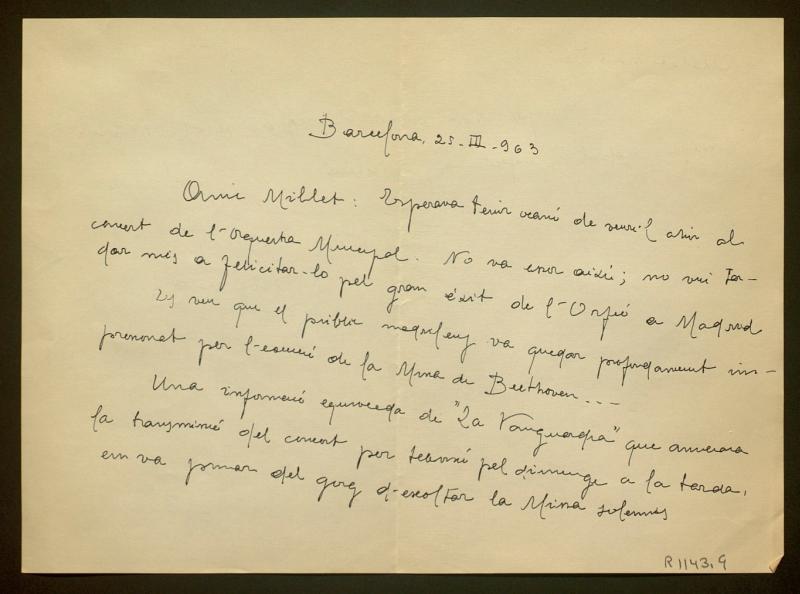 Barcelona, 25-III-963
Amic Millet: Esperava tenir ocasió de veure'l ahir al
concert de l'Orquestra Municipal. No va esser aixi; no vui tar-
dar més a felicitar-lo pel gran éxit de l'Orfeó a Madrid
Es veu que el públic madrileny va quedar profondament im-
presionat per l'execució de la Missa de Beethoven...
Una informació equivocada de "La Vanguardia" que anunciava
la transmissió del concert per televisió pel diumenge a la tarda,
em va privar del goig d'escoltar la Missa solemnis
R 1143,9